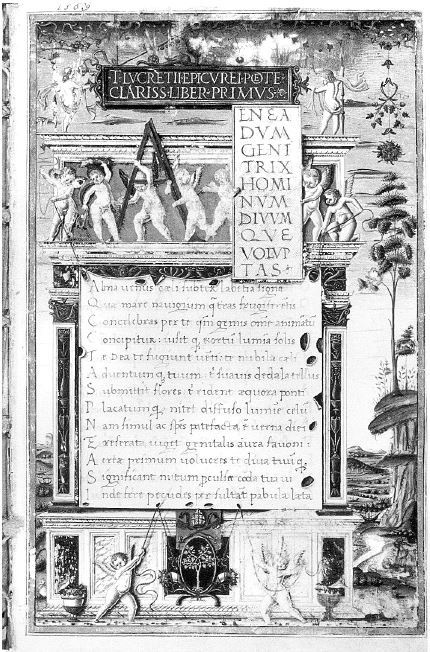 1569
T·LVCRETII·EPICVREI·POTE
CLARISS·LIBER·PRIMVS·
A
ENEA
DVM
GENI
TRIX
HOMI
NVM
DIVVM
QVE
VOLVP
TAS
Alma venus cæli subter labētia signa
Quæ mare navigium q̃ teras frugiferētis
Concelebras per te qm̃ genus omē animātũ
Concipitur: visitq; exortũ lumia solis
Te Dea te fugiunt venti te nubila cæli
Adventumq; tuum: t suavis dedala tellus
Submittit flores t rident æquora ponti
Placatumq; nitet diffuso lumie celũ
Nam simul ac spēs patefacta ē verna diei
Et reserata viget genitalis aura favoni
Aeriæ primum volucres te diva tuũq;
Significant initum pculsæ corda tua vi
Inde feræ pecudes per sultāt pabula læta